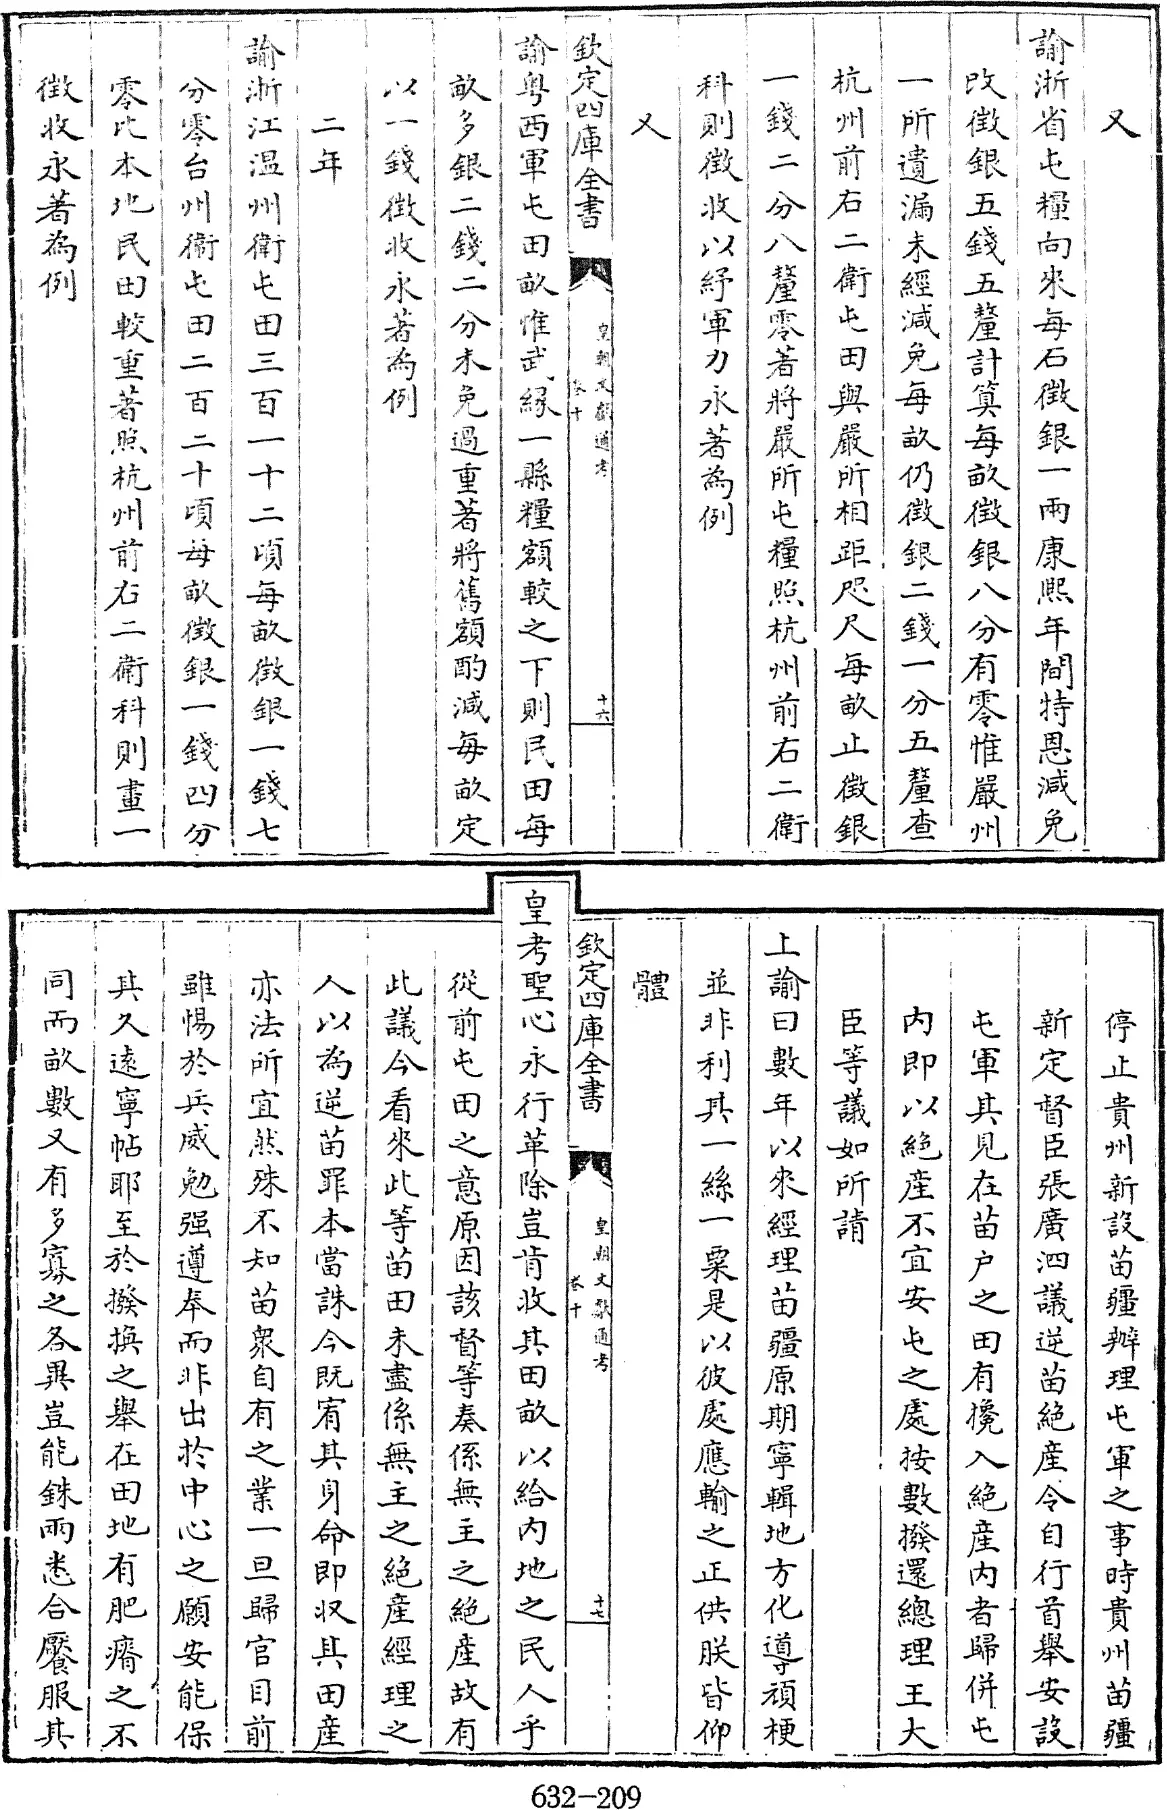 又
諭浙省屯糧向來每石徵銀一兩康熙年間特恩減免
改徵銀五錢五釐計算每畝徵銀八分有零惟嚴州
一所遺漏未經減免每畝仍徵銀二錢一分五釐查
杭州前右二衛屯田與嚴所相距咫尺每畝止徵銀
一錢二分八釐零著將嚴所屯糧照杭州前右二衛
科則徵收以紓軍力永著為例
又
欽定四庫全書
皇朝文獻通考
卷十
十六
諭粵西軍屯田畝惟武緣一縣糧額較之下則民田每
畝多銀二錢二分未免過重著將舊額酌減每畝定
以一錢徵收永著為例
二年
諭浙江温州衛屯田三百一十二頃每畝徵銀一錢七
分零台州衛屯田二百二十頃每畝徵銀一錢四分
零比本地民田較重著照杭州前右二衛科則畫一
徵收永著為例
停止貴州新設苗疆辦理屯軍之事時貴州苗疆
新定督臣張廣泗議逆苗絶產令自行首舉安設
屯軍其見在苗户之田有攙入絶產內者歸併屯
内即以絶產不宜安屯之處按數撥還總理王大
臣等議如所請
上諭曰數年以來經理苗疆原期寧輯地方化導頑梗
並非利其一絲一粟是以彼處應輸之正供朕皆仰
體
欽定四庫全書
皇朝文獻通考
卷十
十七
皇考聖心永行革除豈肯收其田畝以給内地之民人乎
從前屯田之意原因該督等奏係無主之絶產故有
此議今看來此等苗田未盡係無主之絶產經理之
人以為逆苗罪本當誅今既宥其身命即収其田產
亦法所宜然殊不知苗衆自有之業一旦歸官目前
雖惕於兵威勉强遵奉而非出於中心之願安能保
其久遠寧帖耶至於撥換之舉在田地有肥瘠之不
同而畝數又有多寡之各異豈能銖兩悉合饜服其
632-209